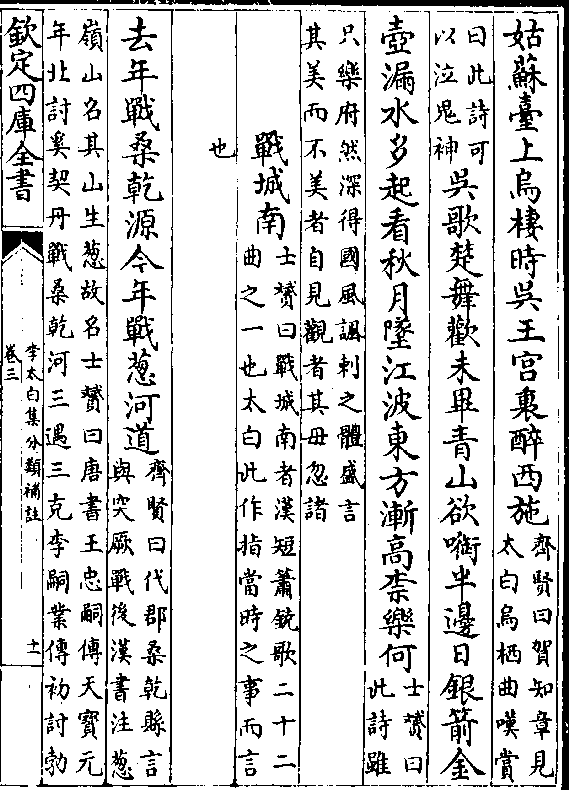 姑蘇臺上烏棲時吳王宫裏醉西施齊賢曰賀知章見太白烏栖曲嘆賞
曰此詩可以泣鬼神吳歌楚舞歡未畢青山欲啣半邊日銀箭金
壺漏水多起看秋月墜江波東方漸高柰樂何士贇曰此詩雖
只樂府然深得國風諷刺之體盛言其美而不美者自見觀者其毋忽諸
戰城南士贇曰戰城南者漢短簫鐃歌二十二曲之一也太白此作指當時之事而言
也
去年戰桑乾源今年戰葱河道齊賢曰代郡桑乾縣言與突厥戰後漢書注葱
嶺山名其山生葱故名士贇曰唐書王忠嗣傳天寶元年北討奚契丹戰桑乾河三遇三克李嗣業傳初討勃
欽定四庫全書
李太白集分類補註
卷三
十一